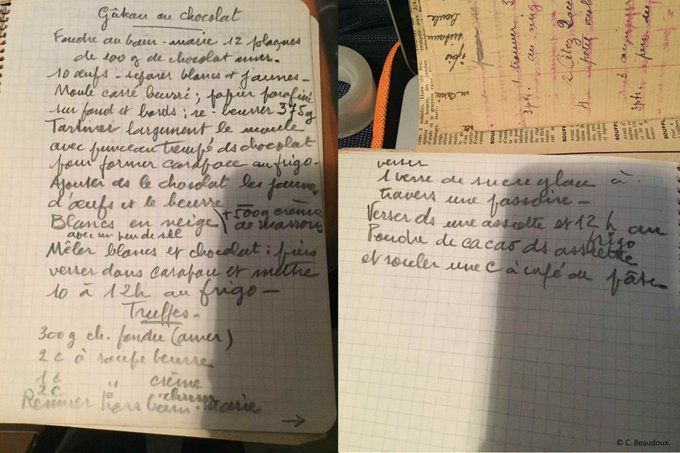 Gâteau au chocolat
Fondre au bain-marie 12 plaques
de 100 g de chocolat amer.
10 œufs - séparer blancs et jaunes -
Moule carré beurré ; papier parafiné
sur fond et bords ; re-beurrer 375g
Tartiner largement le moule
avec pinceau trempé ds chocolat
pour former carapace au frigo -
Ajouter ds le chocolat les jaunes
d'œufs et le beurre
Blancs en neige + 500g crème
avec un peu de sel de marrons
Mêler blancs et chocolat ; puis
verser dans carapace et mettre
10 à 12h au frigo -
Truffes -
300g ch. fondu (amer)
2 c à soupe beurre
1 c " crème
2 c " rhum
Remuer hors bain-marie
→
verser
1 verre de sucre glace à
travers une passoire -
Verser ds une assiette et 12 h au
frigo
Poudre de cacao ds assiette
et rouler une c à café de pâte -
SOUFFL
© C. Beaudoux.